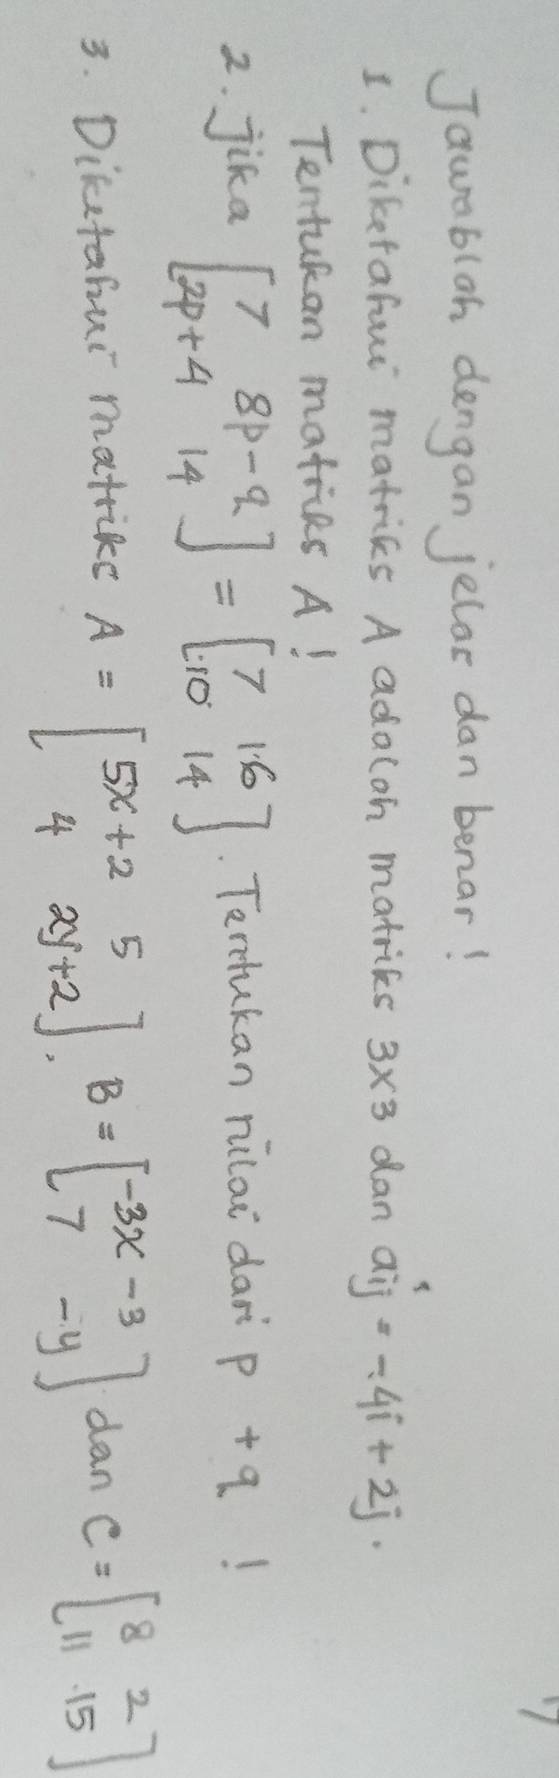 17
Jawablah dengan jelas dan benar!
1. Diketahui matriks A adalah matriks 3x3 dan aij = -4i + 2j.
Tentukan matriks A!
2. Jika [7 8p-q
2p+4 14] = [7 16
10 14]. Tentukan nilai dari p + q !
3. Diketahui matriks A = [5x+2 5
4 2y+2], B = [-3x -3
7 -y] dan C = [8 2
11 15]